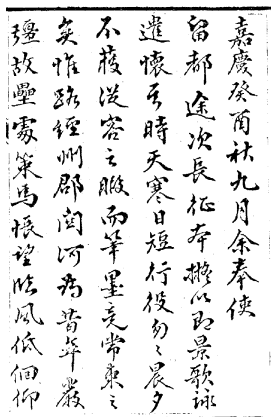 嘉慶癸酉秋九月余奉使
留都途次長征本擬以即景歌詠
遣懷至時天寒日短行役匆〻晨夕
不獲從容之暇而筆墨竟常乗之
矣惟路經州郡関河為昔年嚴
疆故壘處策馬悵望臨風低佪仰